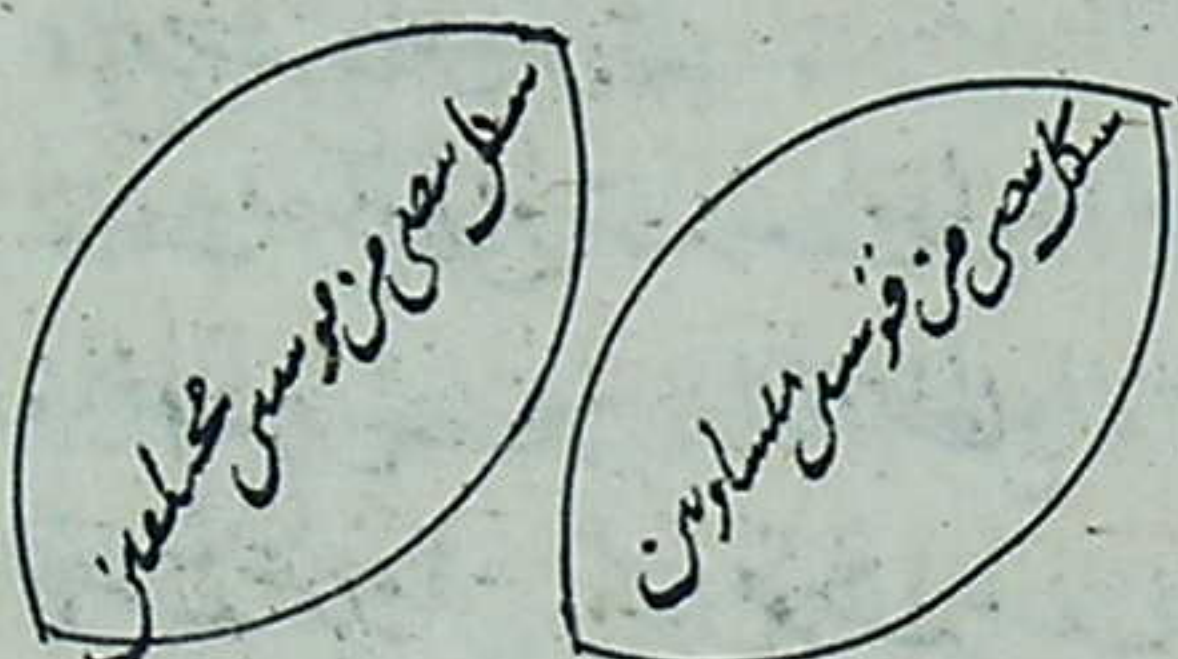 شكل بيضي من قوسين متساويين
شكل بيضي من قوسين مختلفين